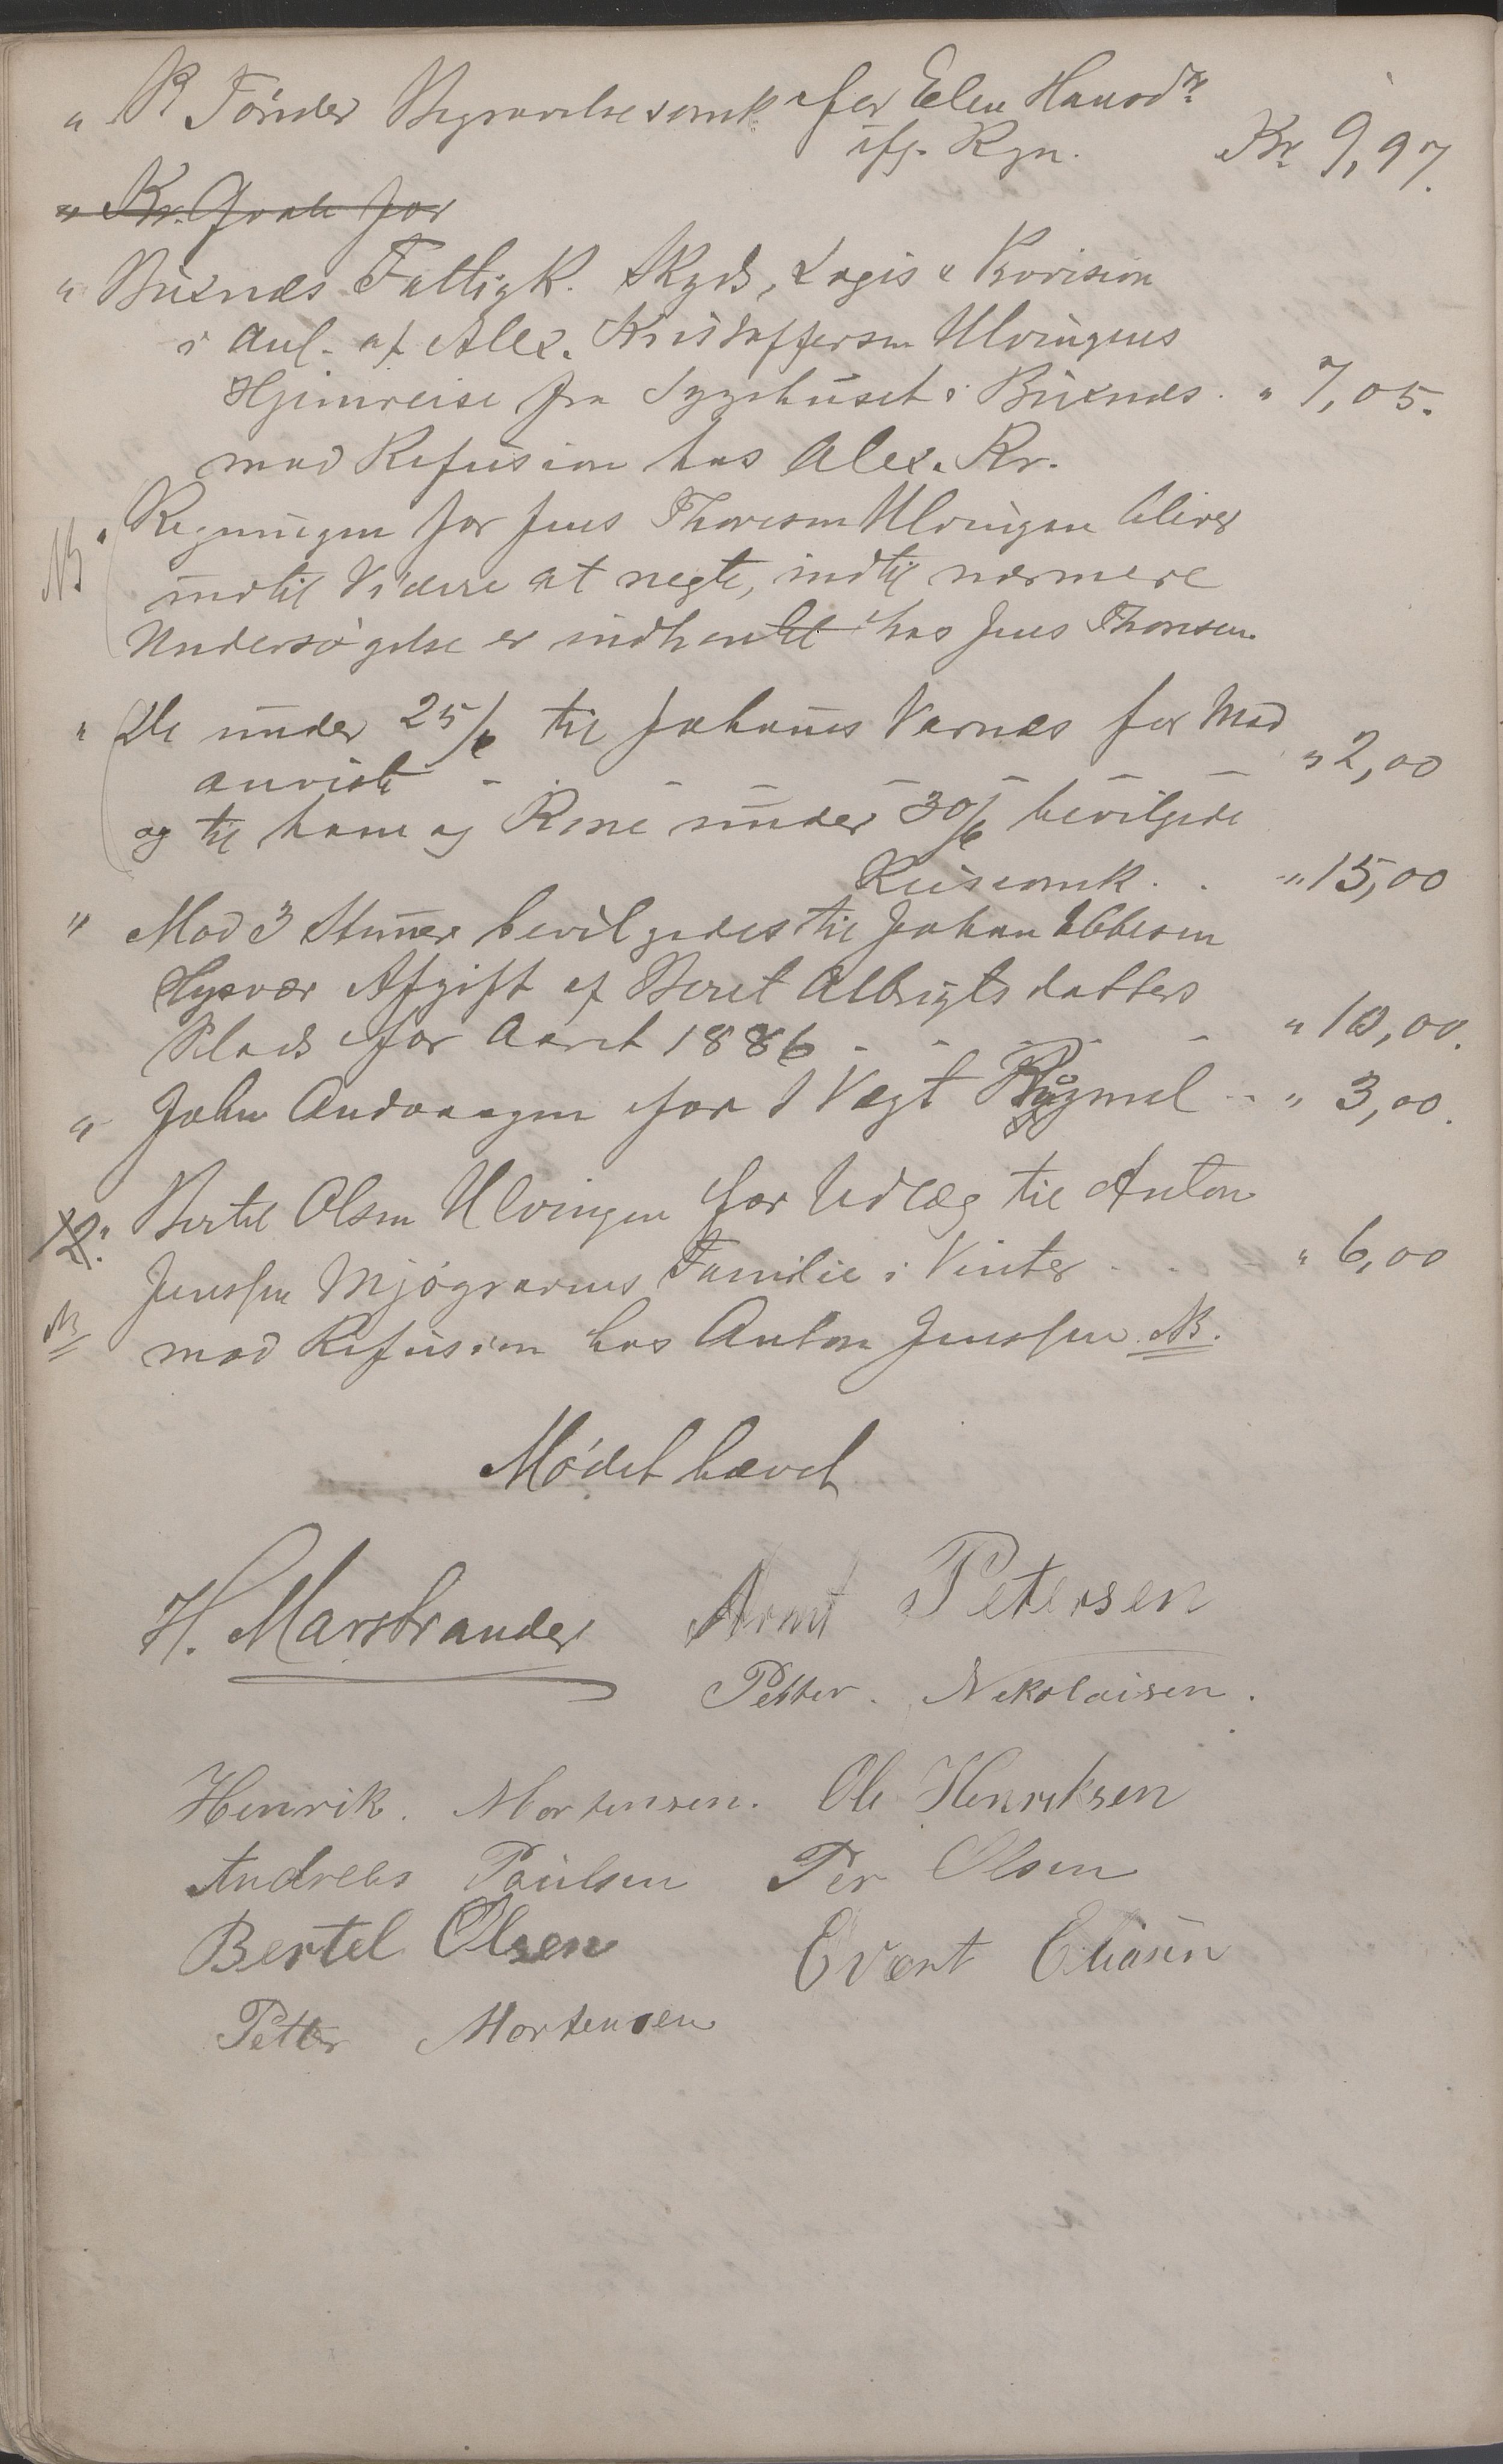 " P Tönder Begravelsesomk. for Elen Hansdr.
ifg. Rgn. Kr 9,97.
" Kr. Grøtte for
" Buxnæs Fattigk. Skyds, Logis & Provision
i Anl. af Alex. Kristoffersen Ulvingens
Hjemreise fra Sygehuset i Buxnæs. " 7,05.
mod Refusion hos Alex. Kr.
NB " Regningen for Jens Thoresen Ulvingen bliver
indtil Videre at negte, indtil nærmere
Undersøgelse er indhentet hos Jens Thoresen.
" De under 25/6 til Johannes Varnæs for Mad
anviste - - - - - " 2,00
og til ham og Kone under 30/6 bevilgede
Reiseomk. . " 15,00
" Mod 3 Stemmer bevilgedes til Johan Ebbesen
Hysvær Afgift af Beret Albrigtsdatters
Plads for Aaret 1886 - - - - " 10,00.
" John Andaasen for 1 Vægt Rügmel - - " 3,00.
12." Bertel Olsen Ulvingen for Udlæg til Anton
Jenssen Mjøgravens Familie i Vinter - - " 6,00
NB mod Refusion hos Anton Jenssen. NB.
Mødet hævet
H. Marsbrander Arnt Petersen
Petter. Nekolaisen.
Henrik. Mortensen. Ole Henriksen
Andreas Paulsen Per Olsen
Bertel Olsen Evert Eliasen
Petter Mortensen